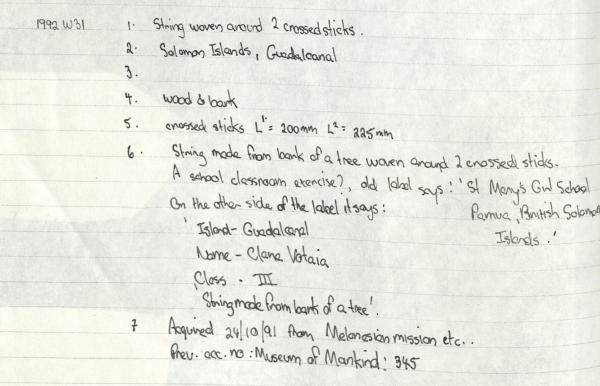 1992 W31 1. String woven around 2 crossed sticks.
2. Solomon Islands, Guadalcanal
3.
4. wood & bark
5. crossed sticks L¹ = 200mm L² = 225mm
6. String made from bark of a tree woven around 2 crossed sticks.
A school classroom exercise?, old label says: 'St Mary's Girl School
On the other side of the label it says: Pamua, British Solomon
'Island - Guadalcanal Islands.'
Name - Clara Votaia
Class - III
String made from bark of a tree'.
7 Acquired 24/10/91 from Melanesian mission etc..
Prev. acc. no: Museum of Mankind: 345